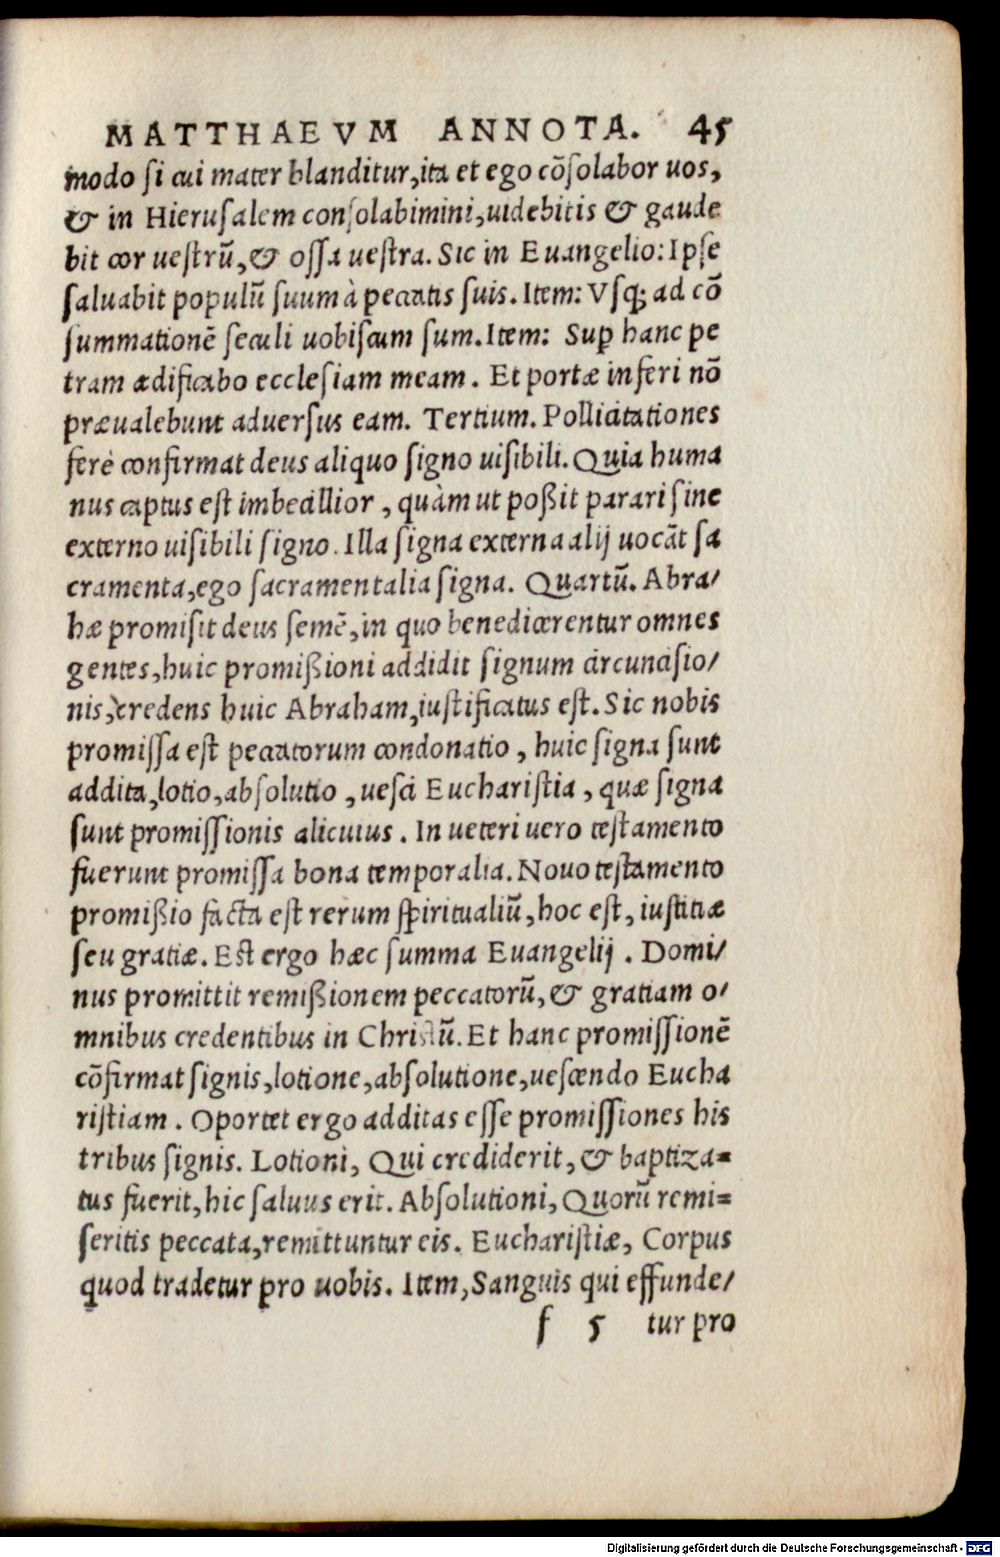 MATTHAEVM ANNOTA. 45
modo si cui mater blanditur, ita et ego cõsolabor uos,
& in Hierusalem consolabimini, uidebitis & gaude
bit cor uestrũ, & ossa uestra. Sic in Euangelio: Ipse
saluabit populũ suum à peccatis suis. Item: Vsq; ad cõ
summationẽ seculi uobiscum sum. Item: Sup hanc pe
tram ædificabo ecclesiam meam. Et portæ inferi nõ
præualebunt aduersus eam. Tertium. Pollicitationes
ferè confirmat deus aliquo signo uisibili. Quia huma
nus captus est imbecillior, quàm ut poßit parari sine
externo uisibili signo. Illa signa externa alij uocãt sa
cramenta, ego sacramentalia signa. Quartũ. Abra/
hæ promisit deus semẽ, in quo benedicerentur omnes
gentes, huic promißioni addidit signum circuncisio/
nis, credens huic Abraham, iustificatus est. Sic nobis
promissa est peccatorum condonatio, huic signa sunt
addita, lotio, absolutio, uesci Eucharistia, quæ signa
sunt promissionis alicuius. In ueteri uero testamento
fuerunt promissa bona temporalia. Nouo testamento
promißio facta est rerum spiritualiũ, hoc est, iustitiæ
seu gratiæ. Est ergo hæc summa Euangelij. Domi/
nus promittit remißionem peccatorũ, & gratiam o/
mnibus credentibus in Christũ. Et hanc promissionẽ
cõfirmat signis, lotione, absolutione, uescendo Eucha
ristiam. Oportet ergo additas esse promissiones his
tribus signis. Lotioni, Qui crediderit, & baptiza=
tus fuerit, hic saluus erit. Absolutioni, Quorũ remi=
seritis peccata, remittuntur eis. Eucharistiæ, Corpus
quod tradetur pro uobis. Item, Sanguis qui effunde/
f 5 tur pro
Digitalisierung gefördert durch die Deutsche Forschungsgemeinschaft - DFG